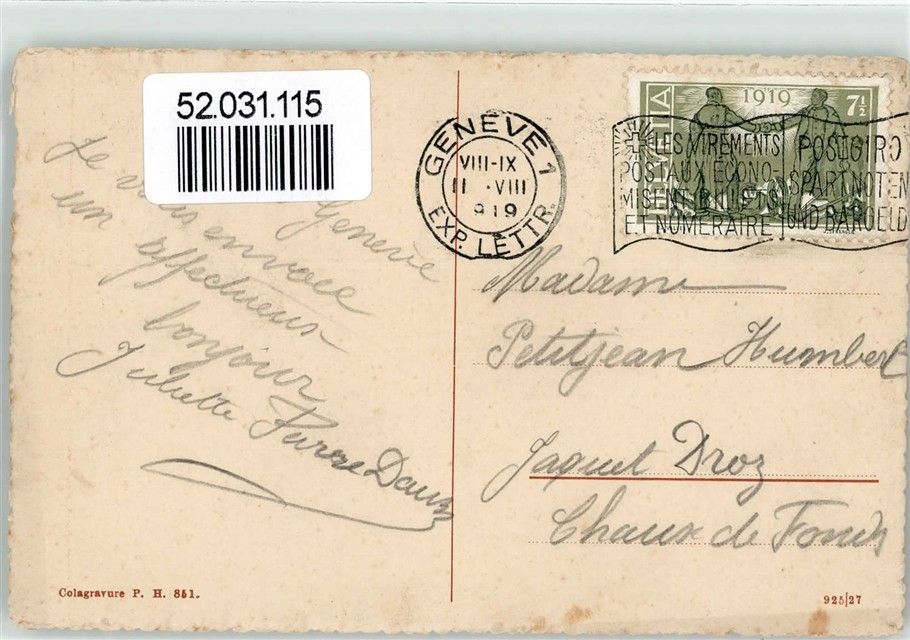 52.031.115
Genève
Je vous envoie
un affectueux
bonjour
Juliette
GENÈVE 1
VIII-IX
11 . VIII
919
EXP. LETTR.
1919
7½
LES VIREMENTS
POSTAUX ÉCONO-
MISENT BILLETS
ET NUMÉRAIRE
POSTGIRO
SPART NOTEN
UND BARGELD
Madame
Petitjean Humbert
Jaquet Droz
Chaux de Fonds
Colagravure P. H. 851.
925/27